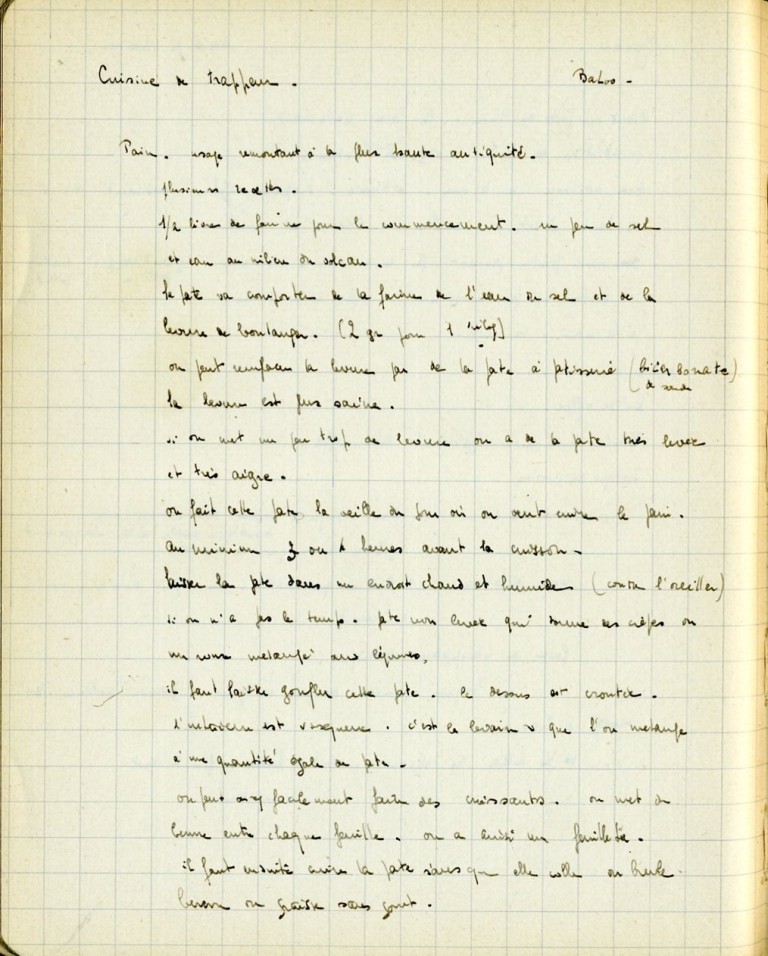 Cuisine de trappeur. Baloo -
Pain. usage remontant à la plus haute antiquité.
plusieurs recettes.
1/2 livre de farine pour le commencement. un peu de sel
et eau au milieu du volcan.
la pate va comporter de la farine de l'eau du sel et de la
levure de boulanger. (2 gr pour 1
on peut remplacer la levure par de la pate à patisserie (bicarbonate)
de soude
la levure est plus saine.
si on met un peu trop de levure on a de la pate très levée
et très aigre.
on fait cette pate la veille du jour où on veut cuire le pain.
au minimum 3 ou 4 heures avant la cuisson -
laisser la pate dans un endroit chaud et humide (contre l'oreiller)
si on n'a pas le temps. pate non levée qui donne des crèpes ou
un roux melangé aux légumes,
il faut laisser gonfler cette pate. le dessus est crouté.
l'interieur est visqueux. c'est le levain que l'on melange
à une quantité égale de pate -
on peut facilement faire des croissants. on met du
beurre entre chaque feuille. on a ainsi un feuilleté.
il faut ensuite cuire la pate sans que elle colle ou brule.
beurre ou graisse sans gout.